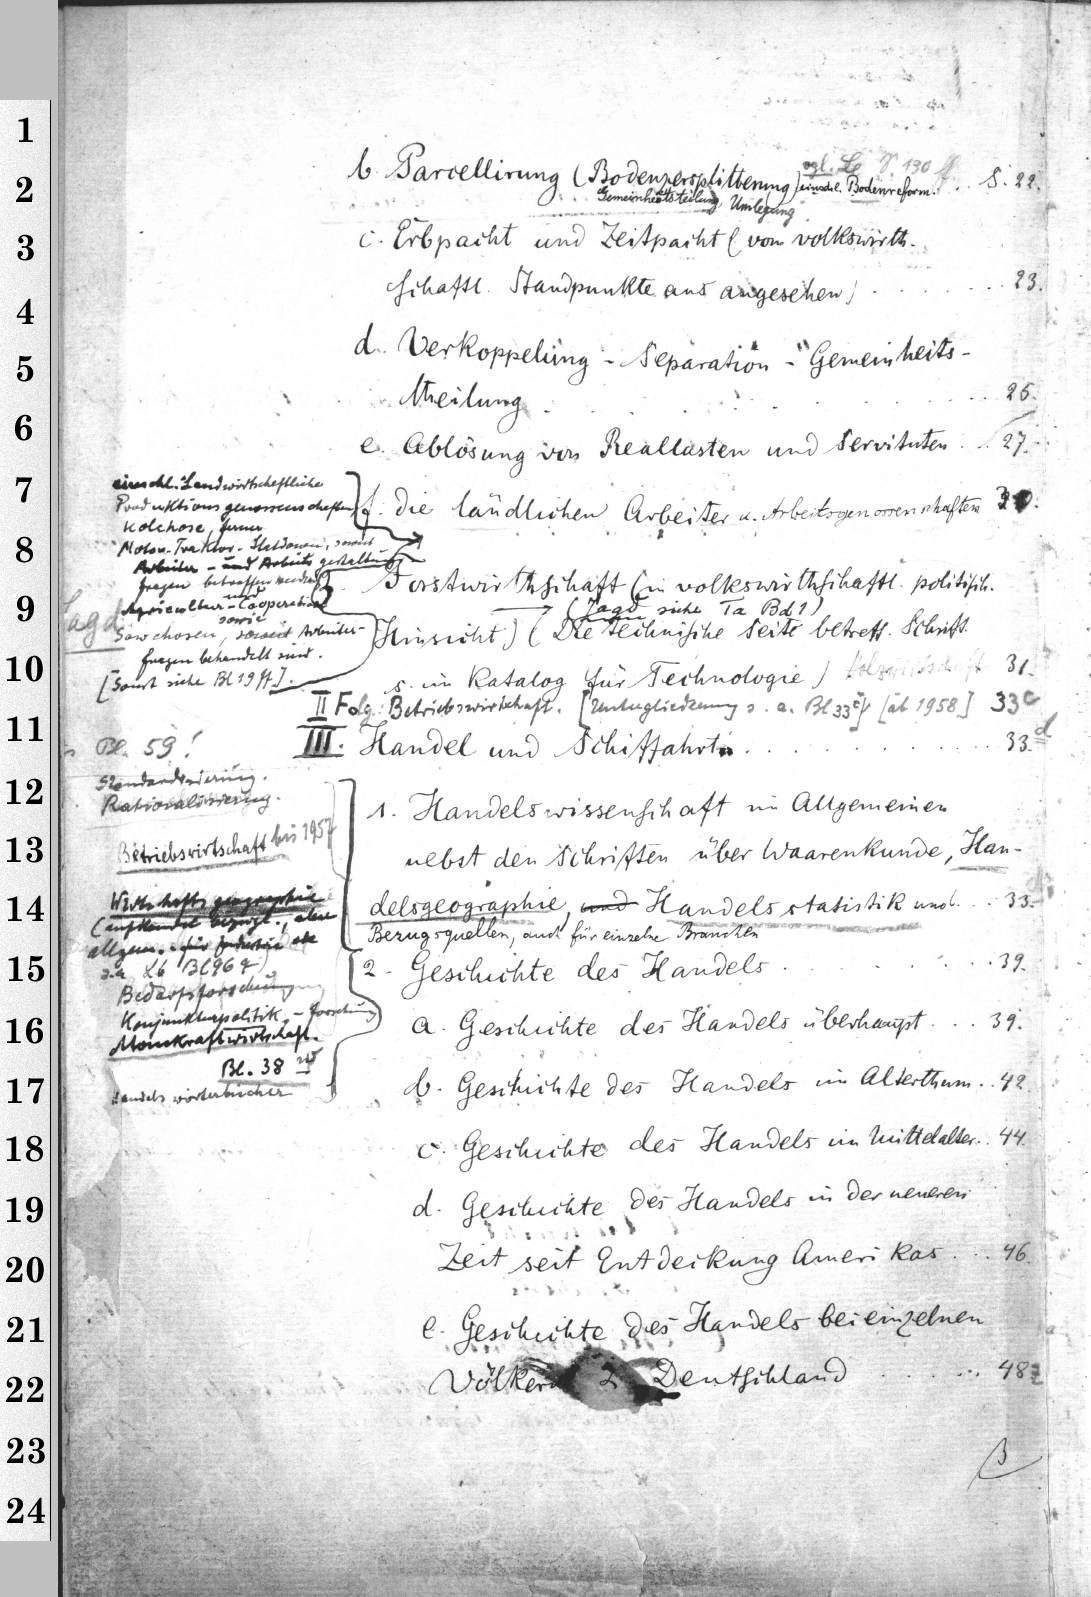 1
2
3
4
5
6
7
8
9
10
11
12
13
14
15
16
17
18
19
20
21
22
23
24
vgl. Le S 130 ff
b. Parcellirung (Bodenzersplitterung) einschl. Bodenreform. . . S. 22.
Gemeinheitsteilung, Umlegung
c. Erbpacht und Zeitpacht (vom volkswirth-
schaftl. Standpunkte aus angesehen) . . . . . . . 23.
d. Verkoppelung - Separation - Gemeinheits-
theilung . . . . . . . . . . 25.
e. Ablösung von Reallasten und Servituten . . . 27.
einschl. Landwirtschaftliche
Produktionsgenossenschaften
Kolchose, ferner
Motor-Traktor-Stationen, soweit
Arbeiter- und Arbeitsgestaltung
fragen betreffen werden
und
Agricultur-Cooperative
sowie
Sowchosen, soweit Arbeiter-
fragen behandelt sind.
[Sonst siehe Bl 19 ff].
Jagd
f. Die ländlichen Arbeiter u. Arbeitsgenossenschaften 30.
Forstwirthschaft (in volkswirthschaftl. politisch.
(Jagd siehe Ta Bd 1)
Hinsicht) (Die technische Seite betreff. Schrift.
s. im Katalog für Technologie) Holzwirtschaft 31.
II Folg: Betriebswirtschaft. [Untergliederung s. a. Bl 33c] [ab 1958] 33c
III. Handel und Schiffahrt . . . . . . . . . . 33.d
Bl. 59!
Standardisierung.
Rationalisierung.
Betriebswirtschaft bis 1957
Wirtschaftsgeographie
(auf Handel bezügl., aber
allgem. . für Industrie
s.a. Lb Bl 96 4)
Bedarfsforschung
Konjunkturpolitik, -forschung
Atomkraftwirtschaft.
Bl. 38
Handelswörterbücher
1. Handelswissenschaft im Allgemeinen
nebst den Schriften über Waarenkunde, Han-
delsgeographie, und Handelsstatistik und. . . 33.
Bezugsquellen, auch für einzelne Branchen
2. Geschichte des Handels . . . . . . . 39.
a. Geschichte des Handels überhaupt . . . 39.
b. Geschichte des Handels im Alterthum . . 42
c. Geschichte des Handels im Mittelalter. . 44.
d. Geschichte des Handels in der neueren
Zeit seit Entdeckung Amerikas . . . 46.
e. Geschichte des Handels bei einzelnen
Völkern 2. Deutschland . . . . . 48